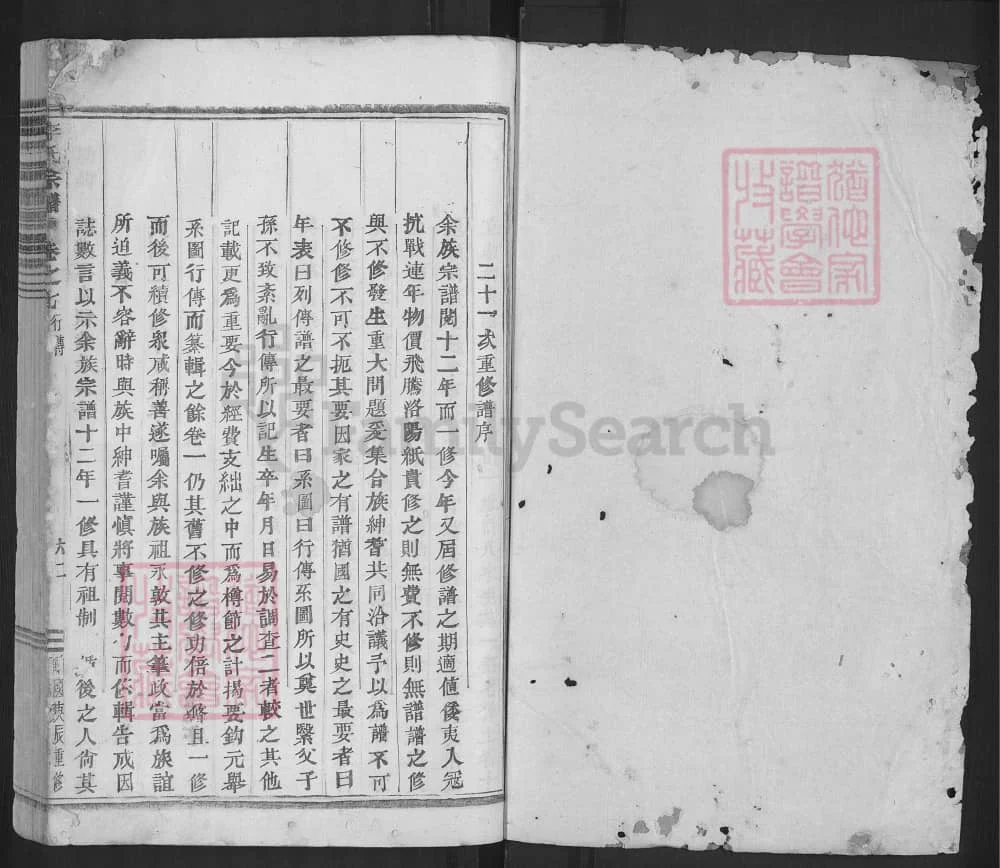 二十一次重修譜序
余族宗譜閱十二年而一修今年又屆修譜之期適值倭夷入冦
抗戰連年物價飛騰洛陽紙貴修之則無費不修則無譜譜之修
與不修發生重大問題爰集合族紳耆共同洽議予以為譜不可
不修修不可不扼其要因家之有譜猶國之有史史之最要者曰
年表曰列傳譜之最要者曰系圖曰行傳系圖所以奠世繫父子
孫不致紊亂行傳所以記生卒年月日易於調查二者較之其他
記載更爲重要今於經費支絀之中而爲樽節之計揚要鈎元舉
系圖行傳而纂輯之餘卷一仍其舊不修之修功倍於修且一修
而後可續修衆咸稱善遂囑余與族祖永敦其主筆政當爲族誼
所迫義不容辭時與族中紳耆謹慎將事閱數 而俻輯告成因
誌數言以示余族宗譜十二年一修具有祖制 後之人尙其
氏宗譜 卷之七 行傳
六二
重修
猶他家
譜學會
特藏
FamilySearch